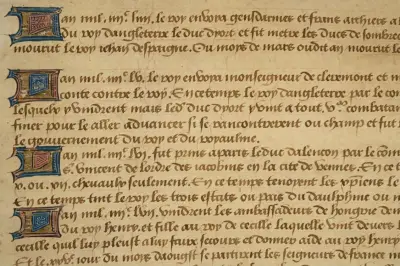 an mil. iiijc. liiij. le roy envoya gensdarmes et frans archiers a
du roy dangleterre le duc diort et fit metre les ducs de sombre
mourut le roy iehan despaigne. Ou mois de mars oudit an mourut le
an mil. iiijc. lv. le roy envoya monseigneur de clermont et m
conte contre le roy. En ce temps le roy dangleterre par le con
lesquelx y vindrent mais led duc diort y vint a tout. combatan
finer pour le aller advancer si se rancontrerent ou champ et fut
le gouvernement du roy et du royaulme.
an mil. iiijc. lvj. fut prins a paris le duc dalencon par le com
s. vincent de lordre des iacobins en la cite de vennes. En ce t
v. ou. vij. chevaulx seulement. En ce temps tenoyent les xpiens le
En ce temps tint le roy les trois estats ou pais du daulphine ou
an mil. iiijc. lvij. vindrent les ambassadeurs de hongrie de
du roy henry. et fille au roy de cecille laquelle vint devers l
cecille quil luy pleust a luy faire secours et donner aide au roy henry
Et le xxve. iour du mois daougst se partirent les seigneurs de france